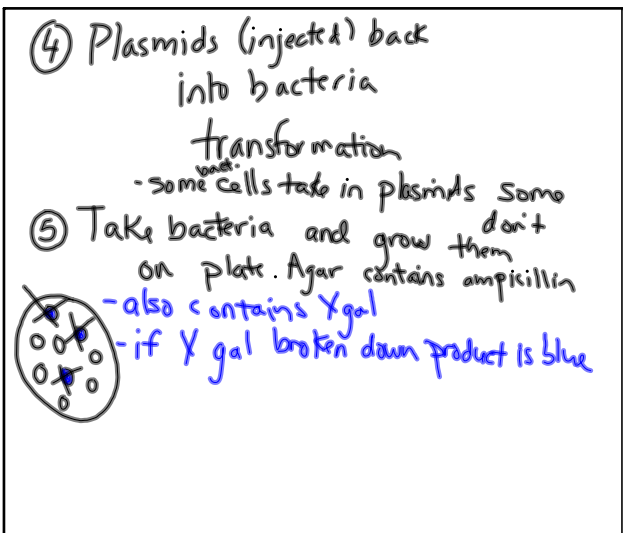 ④ Plasmids (injected) back
into bacteria
transformation
- some bact. cells take in plasmids some don't
⑤ Take bacteria and grow them
on plate. Agar contains ampicillin
- also contains Xgal
- if X gal broken down product is blue